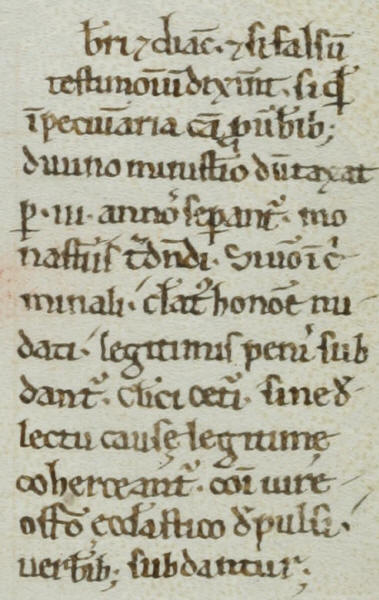 bri ⁊ diac̄. ⁊ si falsū
testimoniū dixint̄. si qͥdē
ī pecuniaria cā p̄bitb;
diuino ministio dūtaxat
ꝑ. iii. annos sepant̄. mo
nastiis t̄dn̄di. Si uo ī cͥ
minali. clat͛ honoē nu
dati. legitimis penis sub
dant͛. Clici ceti. sine đ
lectu cause legitimę
coherceant͛. coi iure
offo eccłastico đpulsi.
uerbib; subdantur;